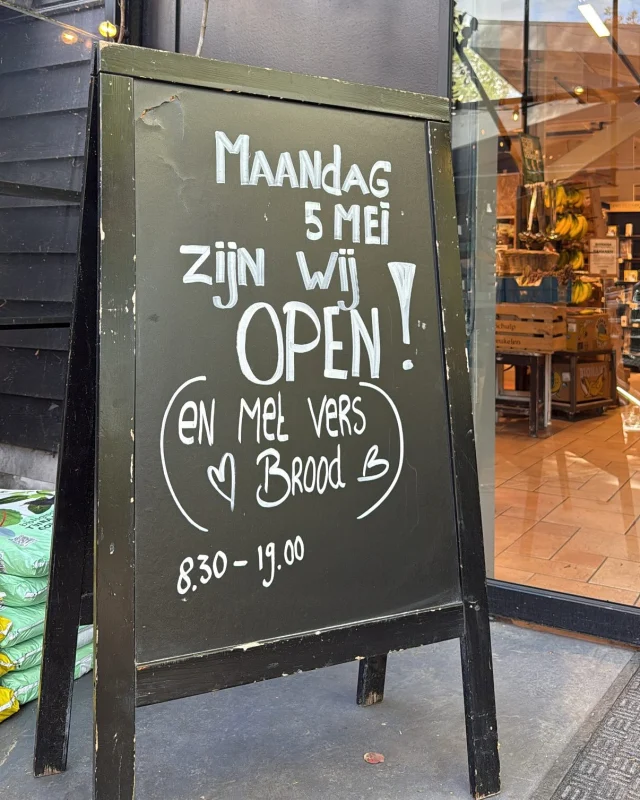 MAANdAG
5 MEi
Zijn Wij
OPEN!
(en Met vers
♡ Brood ♡)
8.30 - 19.00